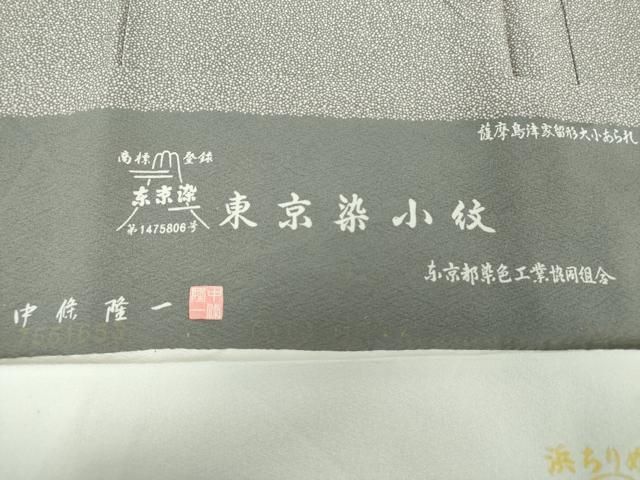 薩摩島津家留形大小あられ
商標登録
东京染
第1475806号
東京染小紋
东京都染色工業協同組合
中條隆一
中條隆一
浜ちりめ